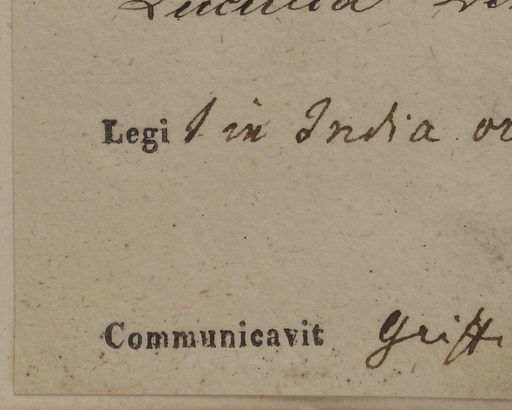 Legit in India or
Communicavit Griff